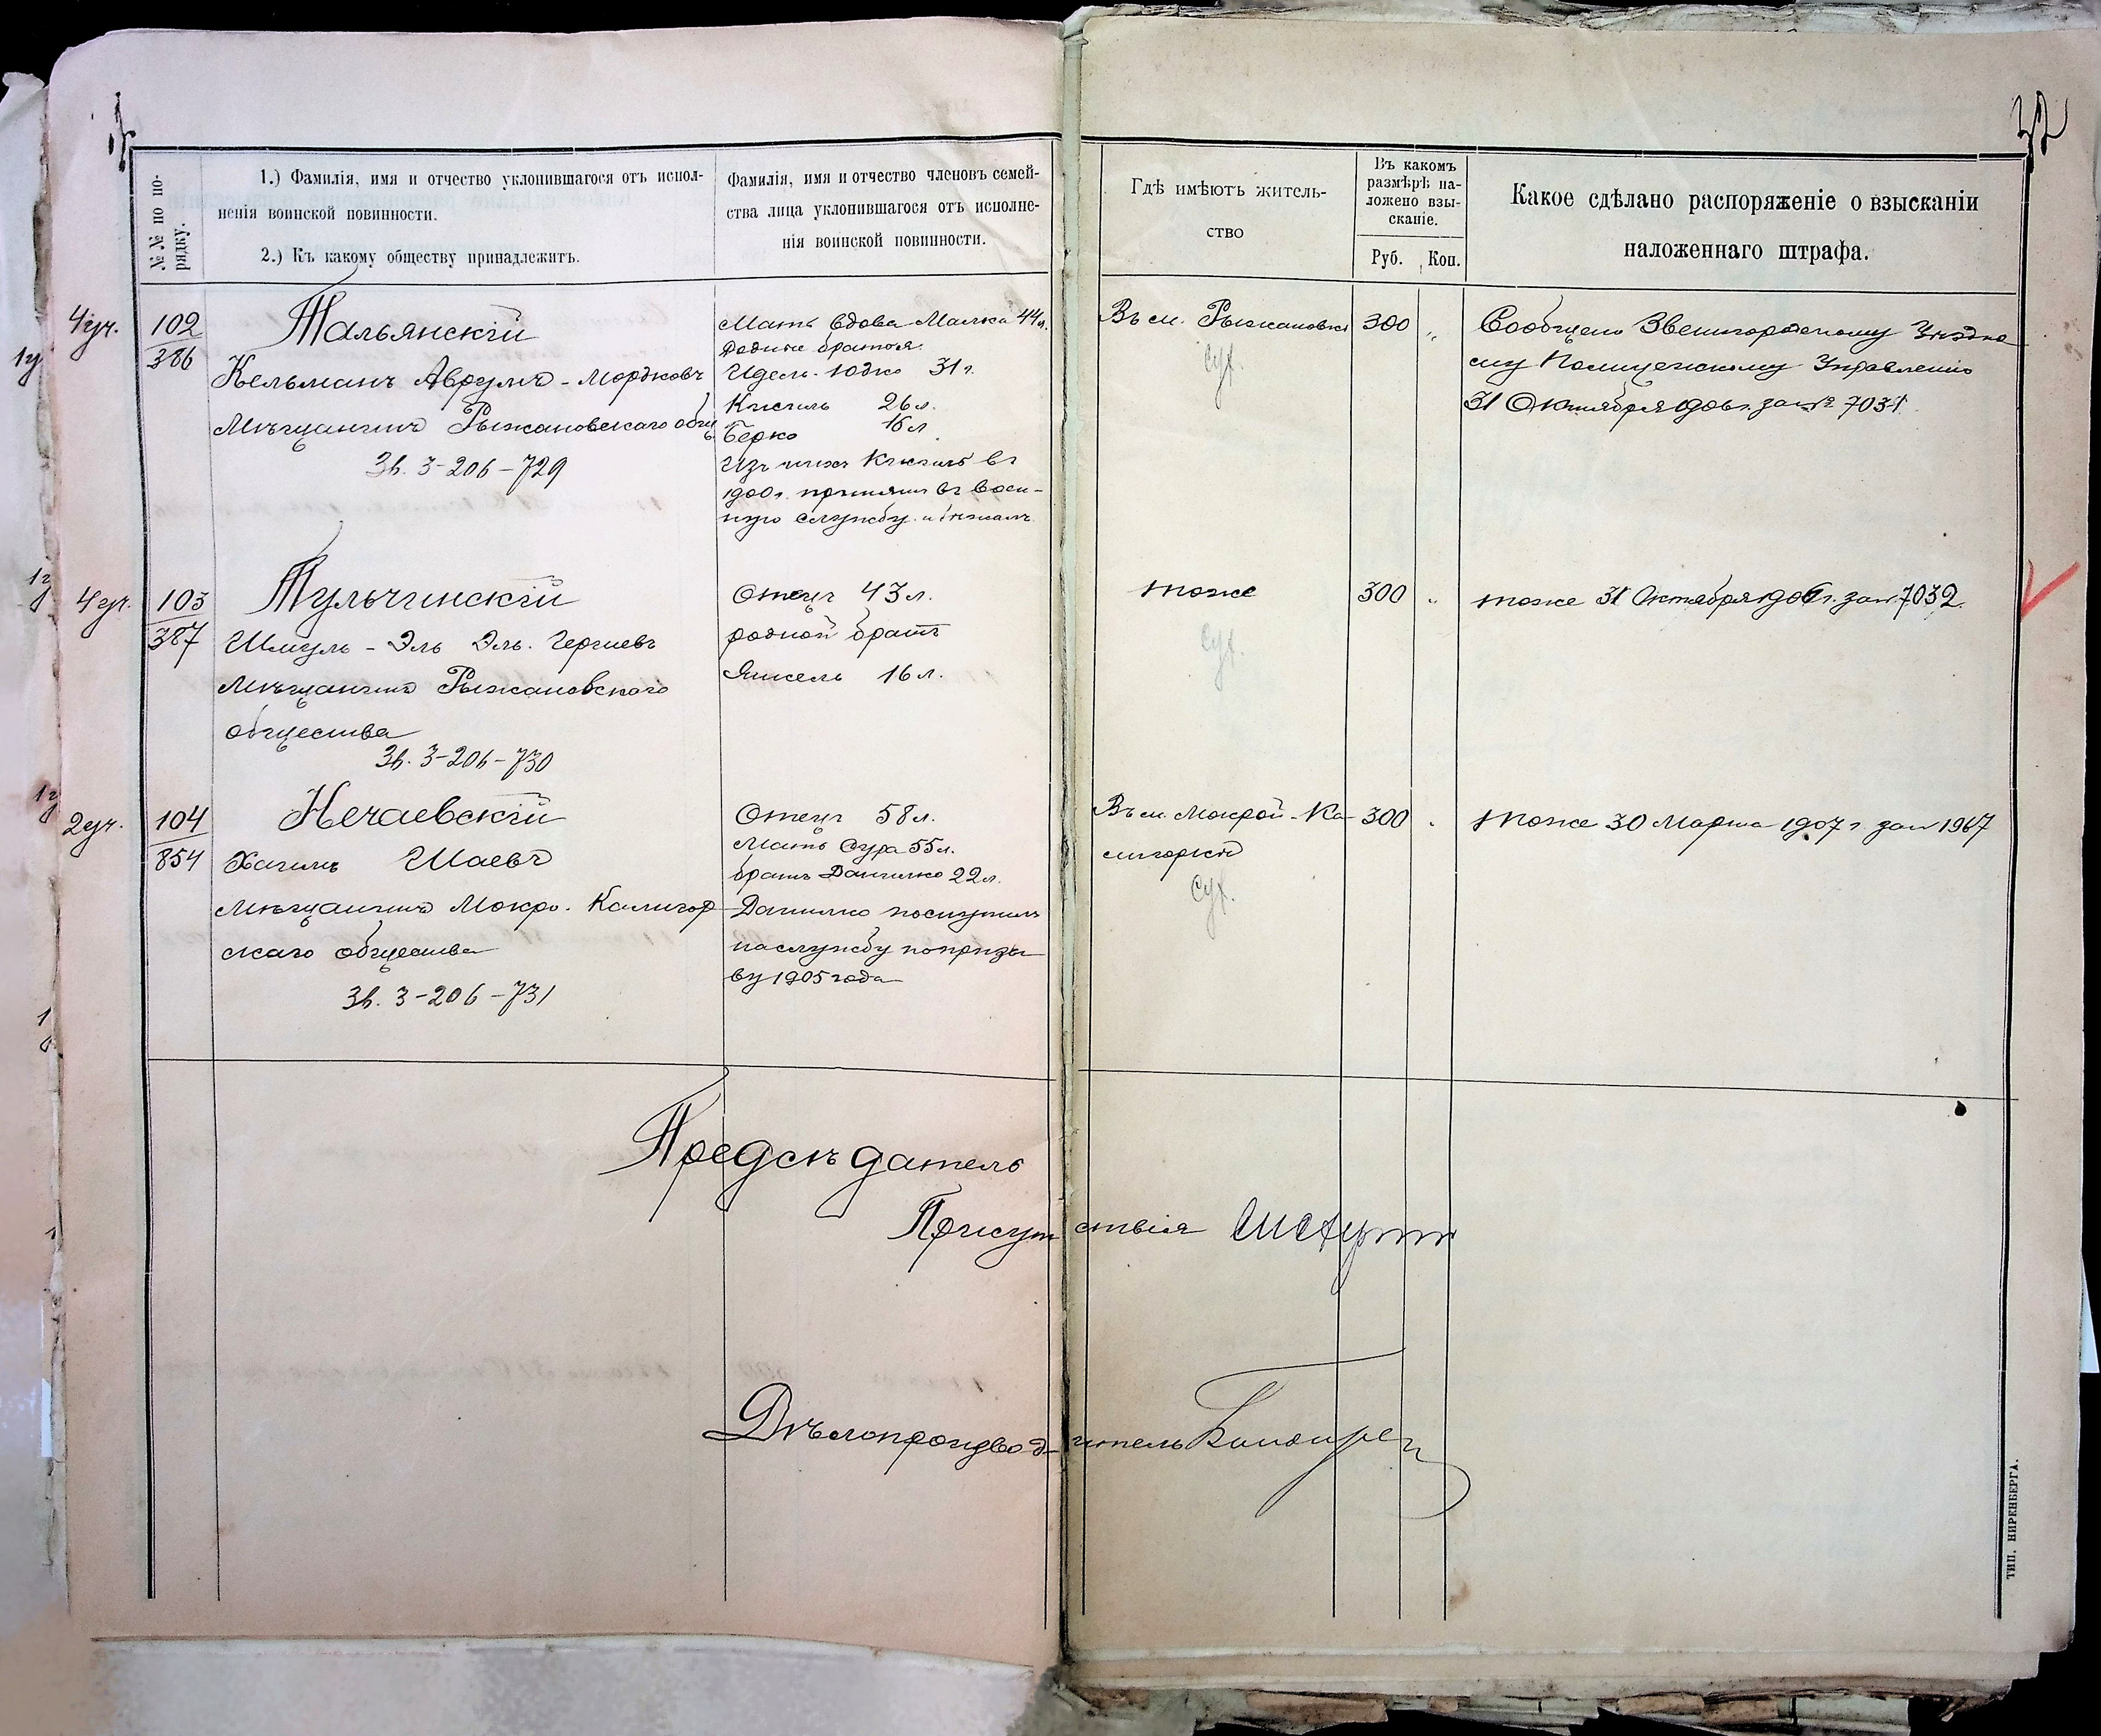 32
№ № по по-
рядку.
1.) Фамилія, имя и отчество уклонившагося отъ испол-
ненія воинской повинности.
2.) Къ какому обществу принадлежитъ.
Фамилія, имя и отчество членовъ семей-
ства лица уклонившагося отъ исполне-
нія воинской повинности.
Гдѣ имѣютъ житель-
ство
Въ какомъ
размѣрѣ на-
ложено взы-
сканіе.
Руб. Коп.
Какое сдѣлано распоряженіе о взысканіи
наложеннаго штрафа.
4 уч.
102
386
Тальянскій
Кельманъ Аврумъ-Мордковъ
Мѣщанинъ Рыжановскаго общ
Зв. 3-206-729
Мать вдова Малка 44 л.
Родные братья
Идель-Юдко 31 г.
Кисиль 26 л.
Берко 16 л.
Изъ нихъ Кисиль въ
1900 г. принятъ въ воен-
ную службу и бѣжалъ
Въ м. Рыжановкѣ
300 „
Сообщено Звенигородскому Уѣздно-
му Полицейскому Управленію
31 Октября 1906 г. за № 7031
4 уч.
103
387
Тульчинскій
Шмуль-Эль Эль-Гершевъ
Мѣщанинъ Рыжановского
общества
Зв. 3-206-730
Отецъ 43 л.
родной братъ
Янкель 16 л.
тоже
300 „
тоже 31 Октября 1906 г. за № 7032.
2 уч.
104
854
Нечаевскій
Хаимъ Шаевъ
Мѣщанинъ Мокро-Калигор-
скаго общества
Зв. 3-206-731
Отецъ 58 л.
Мать Сура 55 л.
братъ Данилко 22 л.
Данилко поступилъ
на службу по призы
ву 1905 года
Въ м. Мокрой-Ка-
лигоркѣ
300 „
тоже 30 Марта 1907 г. за № 1967
Предсѣдатель
Присутствія
Дѣлопроизводитель
ТИП. НИРЕНБЕРГА.